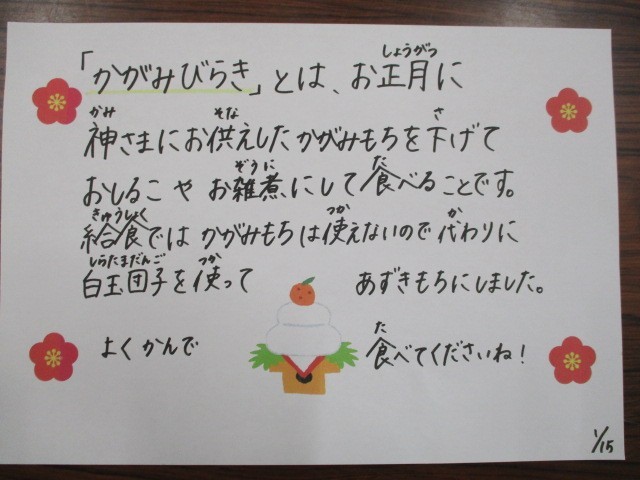 「かがみびらき」とは、お正月に
しょうがつ
神さまにお供えしたかがみもちを下げて
かみ そな さ
おしるこや お雑煮にして食べることです。
ぞうに た
給食では かがみもちは使えないので代わりに
きゅうしょく つか か
白玉団子を使って あずきもちにしました。
しらたまだんご つか
よくかんで 食べてくださいね!
た
1/15